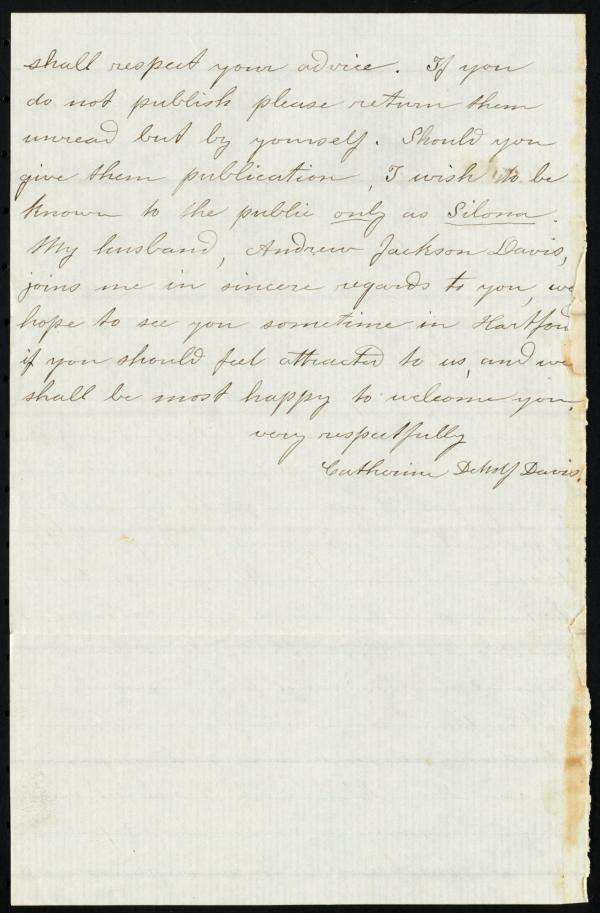 shall respect your advice. If you
do not publish please return them
unread but by yourself. Should you
give them publication, I wish to be
known to the public only as Silona.
My husband, Andrew Jackson Davis,
joins me in sincere regards to you, we
hope to see you sometime in Hartford
if you should feel attracted to us, and we
shall be most happy to welcome you.
very respectfully
Catherine DeWolf Davis.